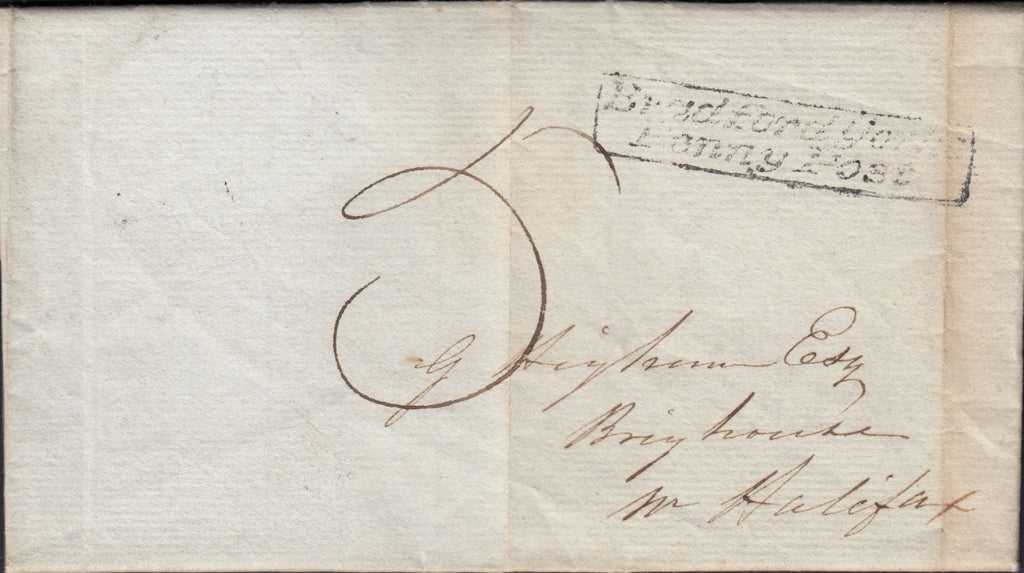 Bradford Yorks
Penny Post
5
G Higham Esq
Brighouse
nr Halifax